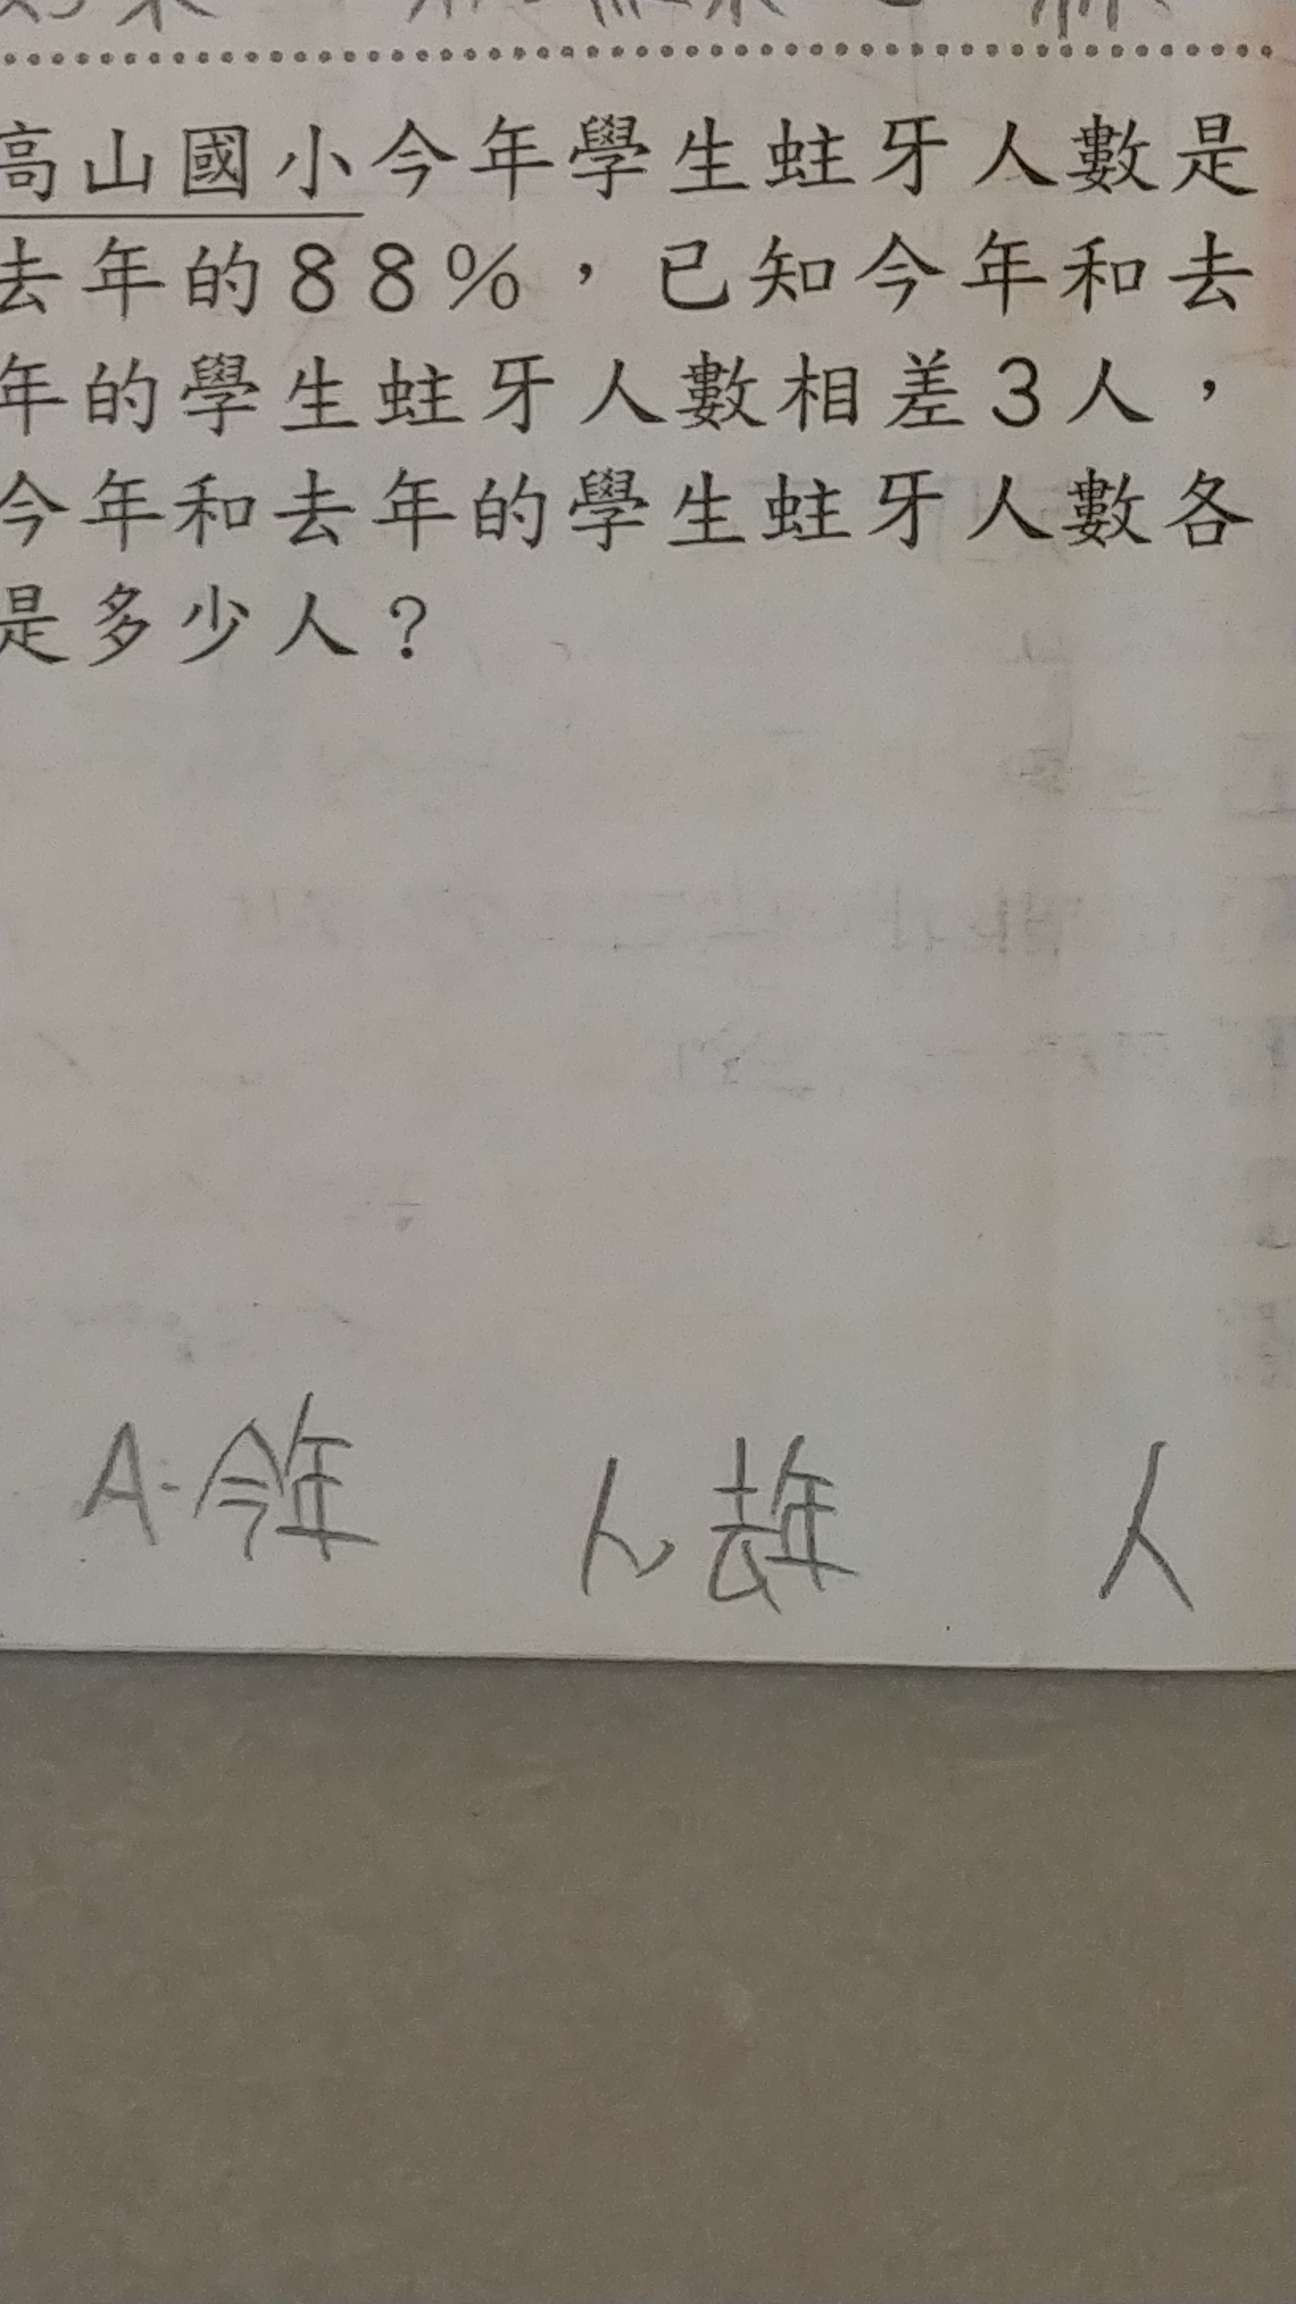 高山國小今年學生蛀牙人數是
去年的88%，已知今年和去
年的學生蛀牙人數相差3人，
今年和去年的學生蛀牙人數各
是多少人？
A:今年 人,去年 人